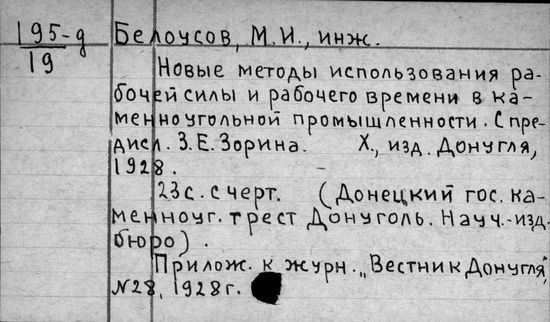 195-д Белоусов, М.И., инж.
19
Новые методы использования ра-
бочей силы и рабочего времени в ка-
менноугольной промышленности. С пре-
дисл. З.Е.Зорина. Х., изд. Донугля,
1928.
23с. с черт. (Донецкий гос. ка-
менноуг. трест Донуголь. Науч.-изд.
бюро).
Прилож. к журн. „Вестник Донугля",
№28, 1928г.